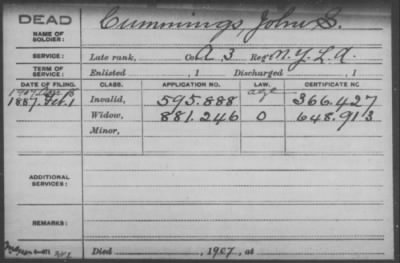 DEAD
Cummings, John S.
NAME OF SOLDIER:
SERVICE: Late rank, Co. A, 3 Reg't N.Y.L.A.
TERM OF SERVICE: Enlisted , 1 Discharged , 1
DATE OF FILING. CLASS. APPLICATION NO. LAW. CERTIFICATE NO.
1907 age
1887. Feb. 1 Invalid, 595.888 366.427
Widow, 881.246 O 648.913
Minor,
ADDITIONAL SERVICES:
REMARKS:
Died , 1907, at